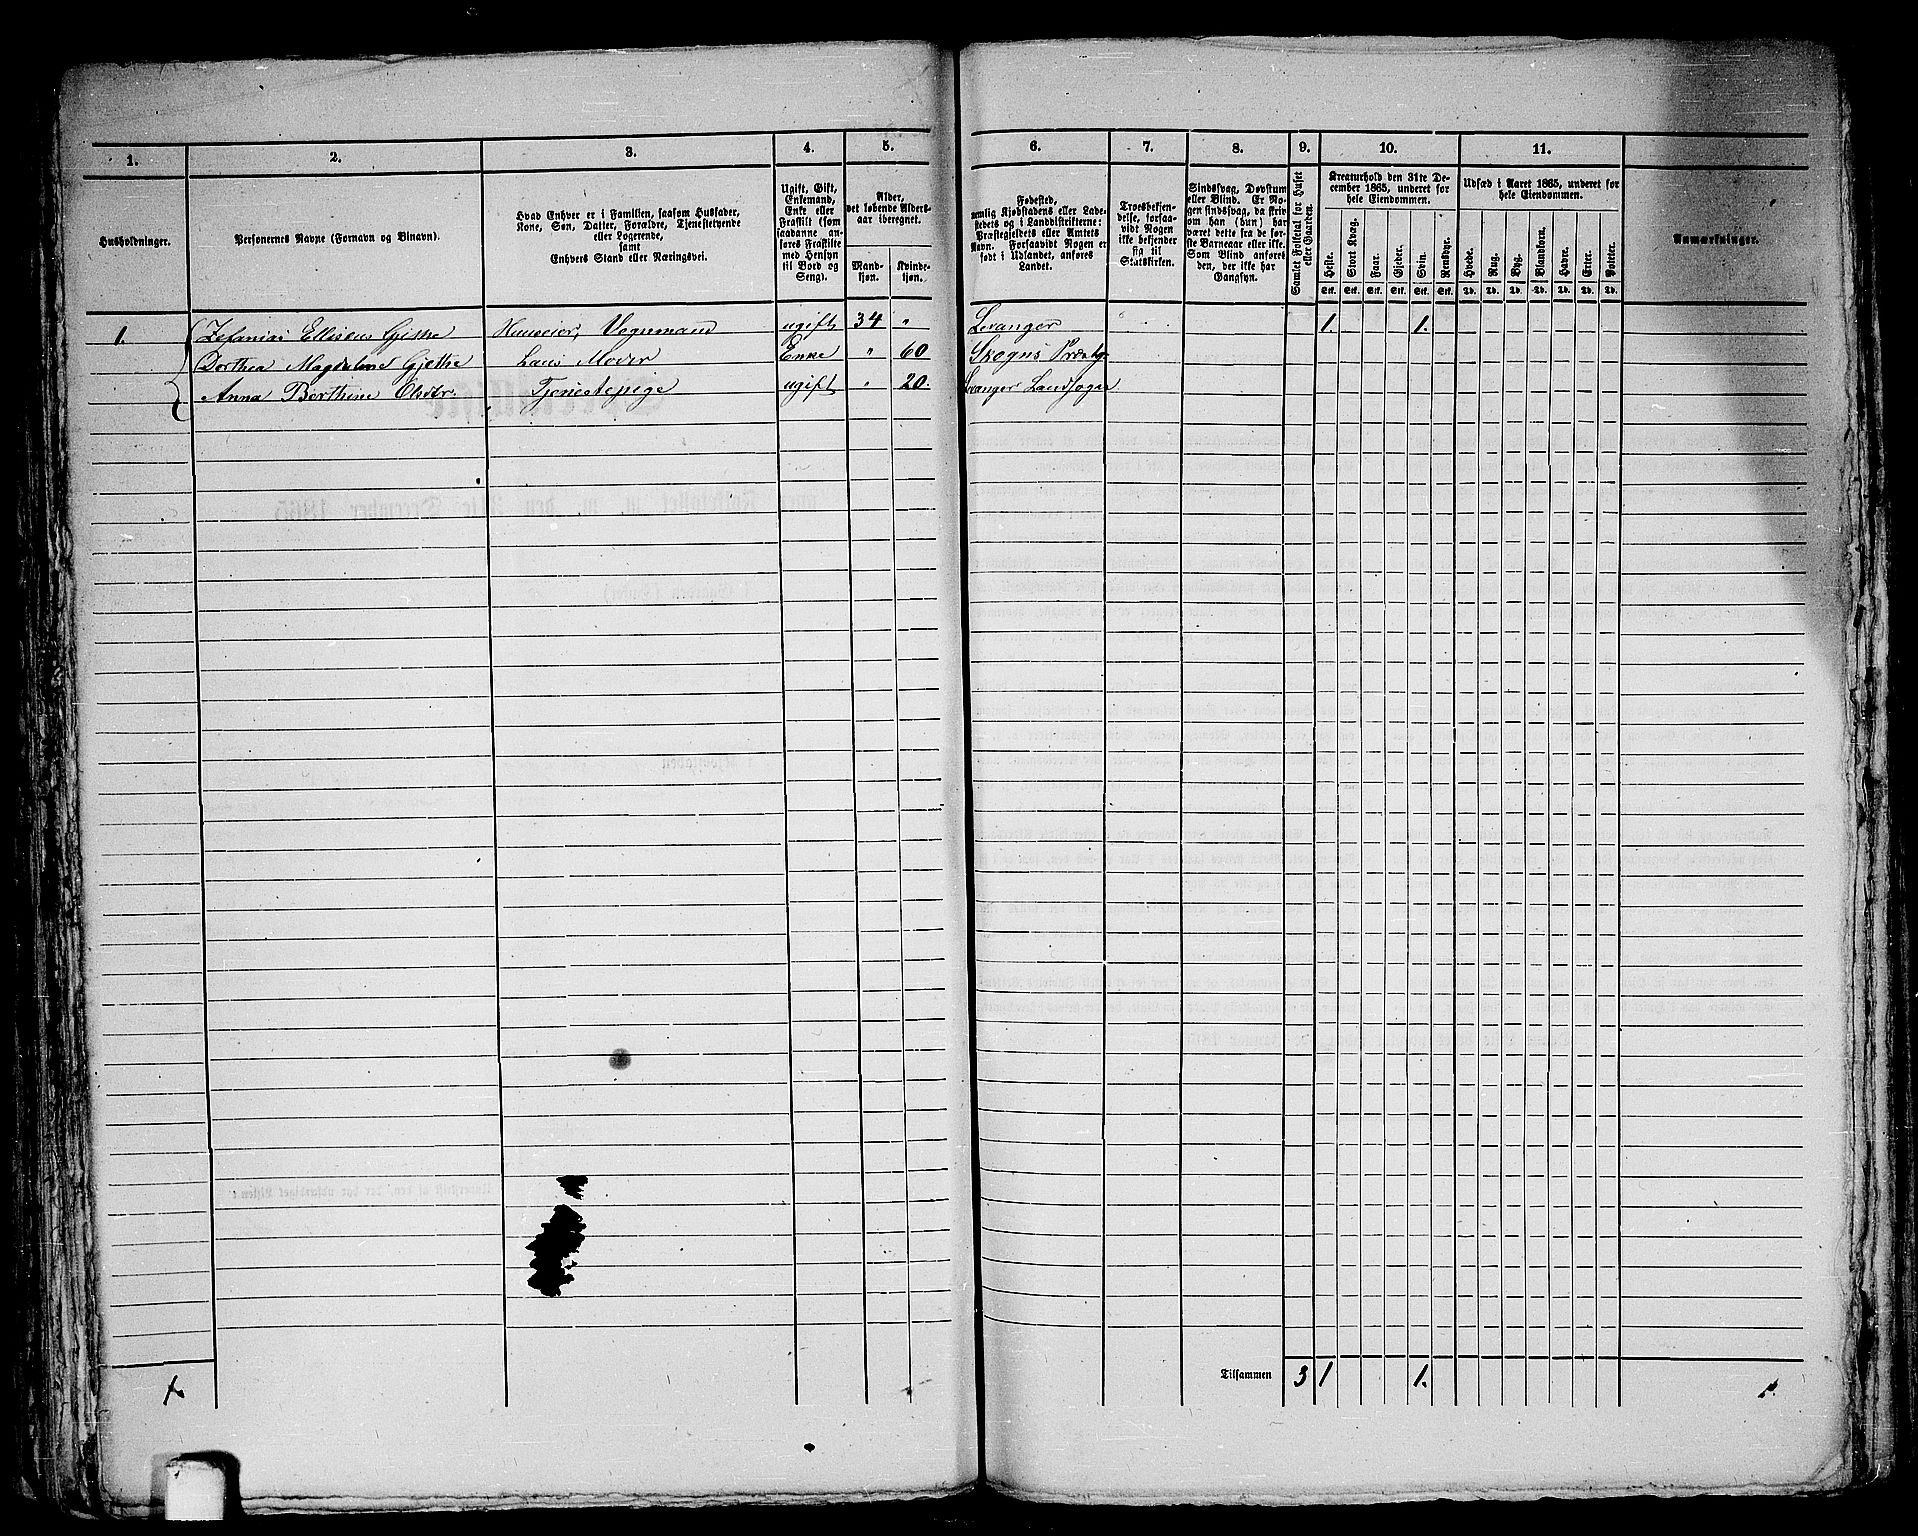 1. 2. 3. 4. 5. 6. 7. 8. 9. 10. 11.
Husholdninger.
Personernes Navne (Fornavn og Binavn).
Hvad Enhver er i Familien, saasom Husfader,
Kone, Søn, Datter, Forældre, Tjenestetyende
eller Logerende,
samt
Enhvers Stand eller Næringsvei.
Ugift, Gift,
Enkemand,
Enke eller
Fraskilt (som
saadanne an-
føres Fraskilte
med Hensyn
til Bord og
Seng).
Alder,
det løbende Alders-
aar iberegnet.
Mand-
kjøn.
Kvinde-
kjøn.
Fødested,
nemlig Kjøbstadens eller Lade-
stedets og i Landdistrikterne:
Præstegjeldets eller Amtets
Navn. Forsaavidt Nogen er
født i Udlandet, anføres
Landet.
Troesbekjen-
delse, forsaa-
vidt Nogen
ikke bekjender
sig til
Statskirken.
Sindssvag, Døvstum
eller Blind. Er No-
gen sindssvag, da skriv
om han (hun) har
været dette fra de før-
ste Barneaar eller ikke.
Som Blind anføres
den, der ikke har
Gangsyn.
Samlet Folketal for Huset
eller Gaarden.
Kreaturhold den 31te De-
cember 1865, underet for
hele Eiendommen.
Heste. Stort Kvæg. Faar. Gjeder. Svin. Rensdyr.
Stk. Stk. Stk. Stk. Stk. Stk.
Udsæd i Aaret 1865, underet for
hele Eiendommen.
Hvede. Rug. Byg. Blandkorn. Havre. Erter. Poteter.
Td. Td. Td. Td. Td. Td. Td.
Anmærkninger.
1. Zefanias Elliseus Gjethe Huuseier, Vognmand ugift 34 " Levanger 1. 1.
Dorthea Magdalene Gjethe hans Moder Enke " 60 Skogns Præstg.
Anna Berthine Olsdtr. Tjenestepige ugift " 20. Levanger Landsogn
Tilsammen 3 1 1.